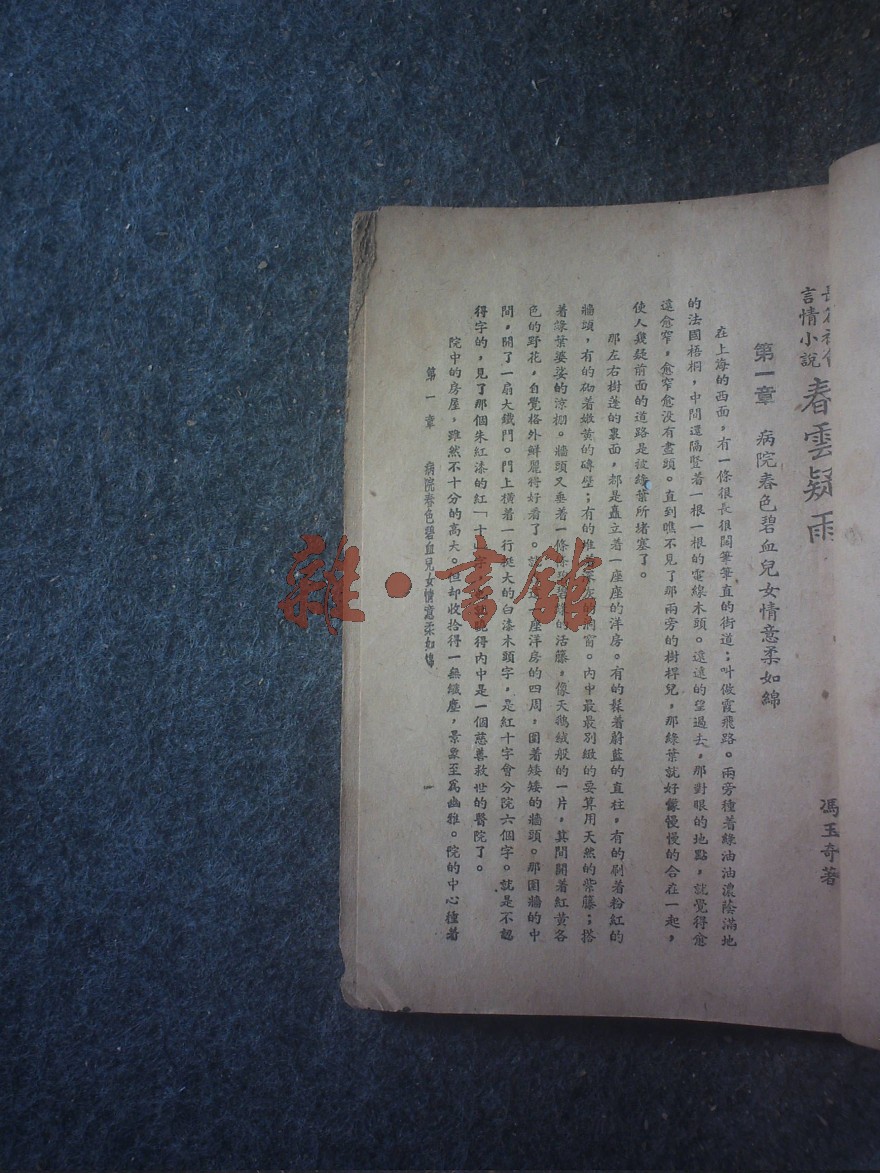 言情小說
春雲疑雨
馮玉奇著
第一章　病院春色碧血兒女情意柔如綿
在上海的西面，有一條很長很闊筆筆直的街道；叫做霞飛路。兩旁種着綠油油濃蔭滿地
的法國梧桐，中間還隔豎着一根一根的電線木頭。遠遠的望過去，那對眼的地點，就覺得愈
遠愈窄，愈窄愈沒有盡頭。直到瞧不見了那兩旁的樹桿兒，那綠葉就好像慢慢的合在一起，
使人幾疑前面的道路是被綠葉所堵塞了。
那左右樹蓬的裏面，都是矗立着一座座的洋房。有的髹着蔚藍的直柱，有的刷着粉紅的
牆頭，有的砌着嫩黃的磚壁；有的堆窗。內中最最別緻的要算用天然的紫藤；搭
着綠葉婆娑的涼棚。牆頭又垂着一條條的活藤，像天鵝絨般的一片，其間開着紅黃各
色的野花，自覺格外鮮麗得好看了。座洋房的四周，圍着矮矮的牆頭。那圍牆的中
間，開了一扇大鐵門。門上橫着一行挺大的白漆木頭字，是紅十字會分院六個字。就是不認
得字的，見了那個朱紅漆的紅「十得內中是一個慈善救世的醫院了。
院中的房屋，雖然不十分的高大。但却收拾得一無纖塵，景象至爲幽雅。院的中心種着
第一章　病院春色碧血兒女情意柔如綿
一
雜·書館